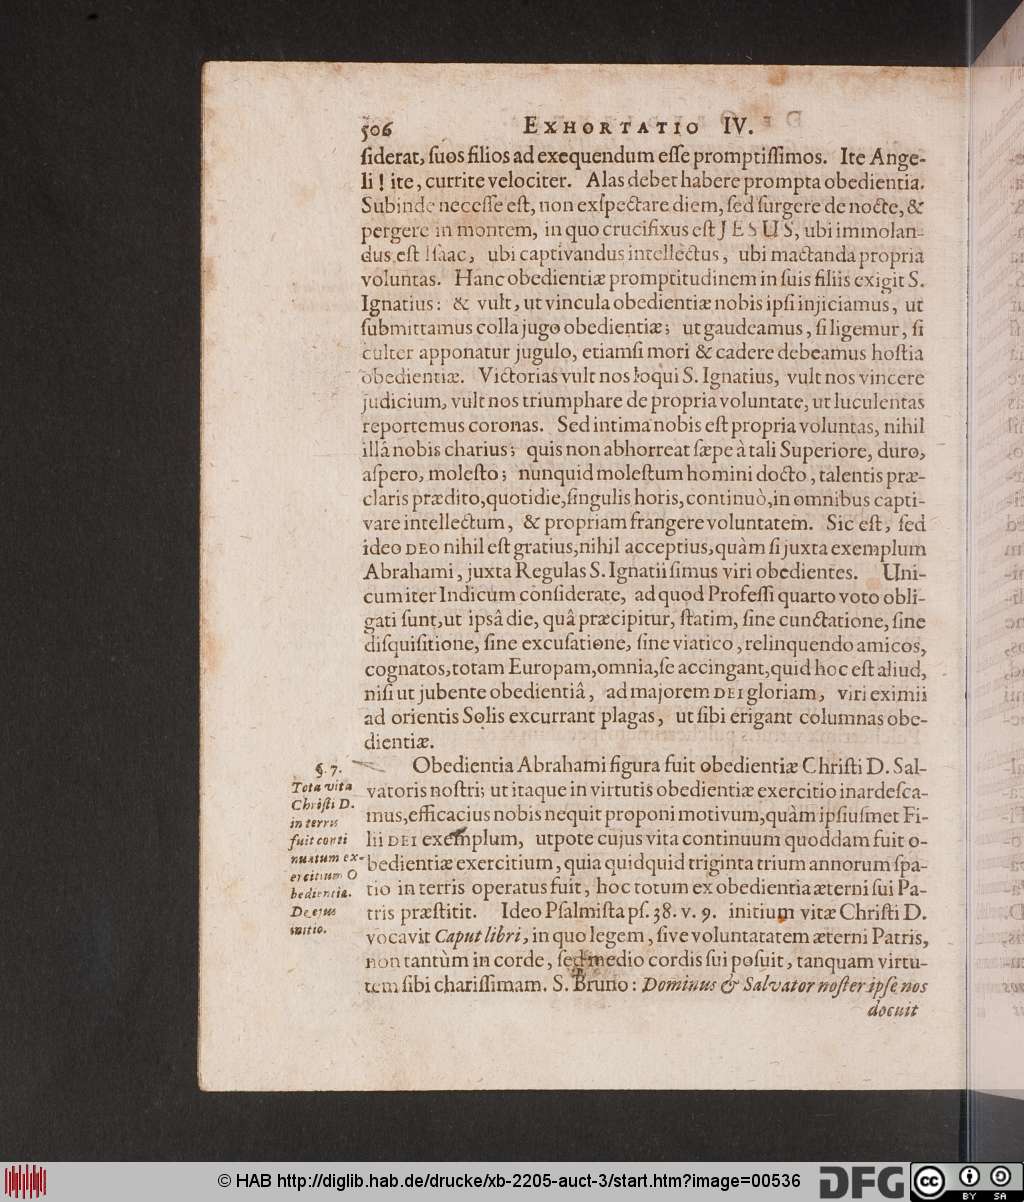 506 EXHORTATIO IV.
siderat, suos filios ad exequendum esse promptissimos. Ite Ange-
li! ite, currite velociter. Alas debet habere prompta obedientia.
Subinde necesse est, non exspectare diem, sed surgere de nocte, &
pergere in montem, in quo crucifixus est JESUS, ubi immolan-
dus est Isaac, ubi captivandus intellectus, ubi mactanda propria
voluntas. Hanc obedientiæ promptitudinem in suis filiis exigit S.
Ignatius: & vult, ut vincula obedientiæ nobis ipsi injiciamus, ut
submittamus colla jugo obedientiæ; ut gaudeamus, si ligemur, si
culter apponatur jugulo, etiamsi mori & cadere debeamus hostia
obedientiæ. Victorias vult nos loqui S. Ignatius, vult nos vincere
judicium, vult nos triumphare de propria voluntate, ut luculentas
reportemus coronas. Sed intima nobis est propria voluntas, nihil
illâ nobis charius; quis non abhorreat sæpe à tali Superiore, duro,
aspero, molesto; nunquid molestum homini docto, talentis præ-
claris prædito, quotidie, singulis horis, continuò, in omnibus capti-
vare intellectum, & propriam frangere voluntatem. Sic est, sed
ideo DEO nihil est gratius, nihil acceptius, quàm si juxta exemplum
Abrahami, juxta Regulas S. Ignatii simus viri obedientes. Uni-
cum iter Indicum considerate, ad quod Professi quarto voto obli-
gati sunt, ut ipsâ die, quâ præcipitur, statim, sine cunctatione, sine
disquisitione, sine excusatione, sine viatico, relinquendo amicos,
cognatos, totam Europam, omnia, se accingant, quid hoc est aliud,
nisi ut jubente obedientiâ, ad majorem DEI gloriam, viri eximii
ad orientis Solis excurrant plagas, ut sibi erigant columnas obe-
dientiæ.
§. 7.
Tota vita
Christi D.
in terris
fuit conti
nuatum ex-
ercitium O
bedientia.
De ejus
initio.
Obedientia Abrahami figura fuit obedientiæ Christi D. Sal-
vatoris nostri; ut itaque in virtutis obedientiæ exercitio inardesca-
mus, efficacius nobis nequit proponi motivum, quàm ipsiusmet Fi-
lii DEI exemplum, utpote cujus vita continuum quoddam fuit o-
bedientiæ exercitium, quia quidquid triginta trium annorum spa-
tio in terris operatus fuit, hoc totum ex obedientia æterni sui Pa-
tris præstitit. Ideo Psalmista ps. 38. v. 9. initium vitæ Christi D.
vocavit Caput libri, in quo legem, sive voluntatatem æterni Patris,
non tantùm in corde, sed medio cordis sui posuit, tanquam virtu-
tem sibi charissimam. S. Bruno: Dominus & Salvator noster ipse nos
docuit
© HAB http://diglib.hab.de/drucke/xb-2205-auct-3/start.htm?image=00536
DFG
cc BY SA